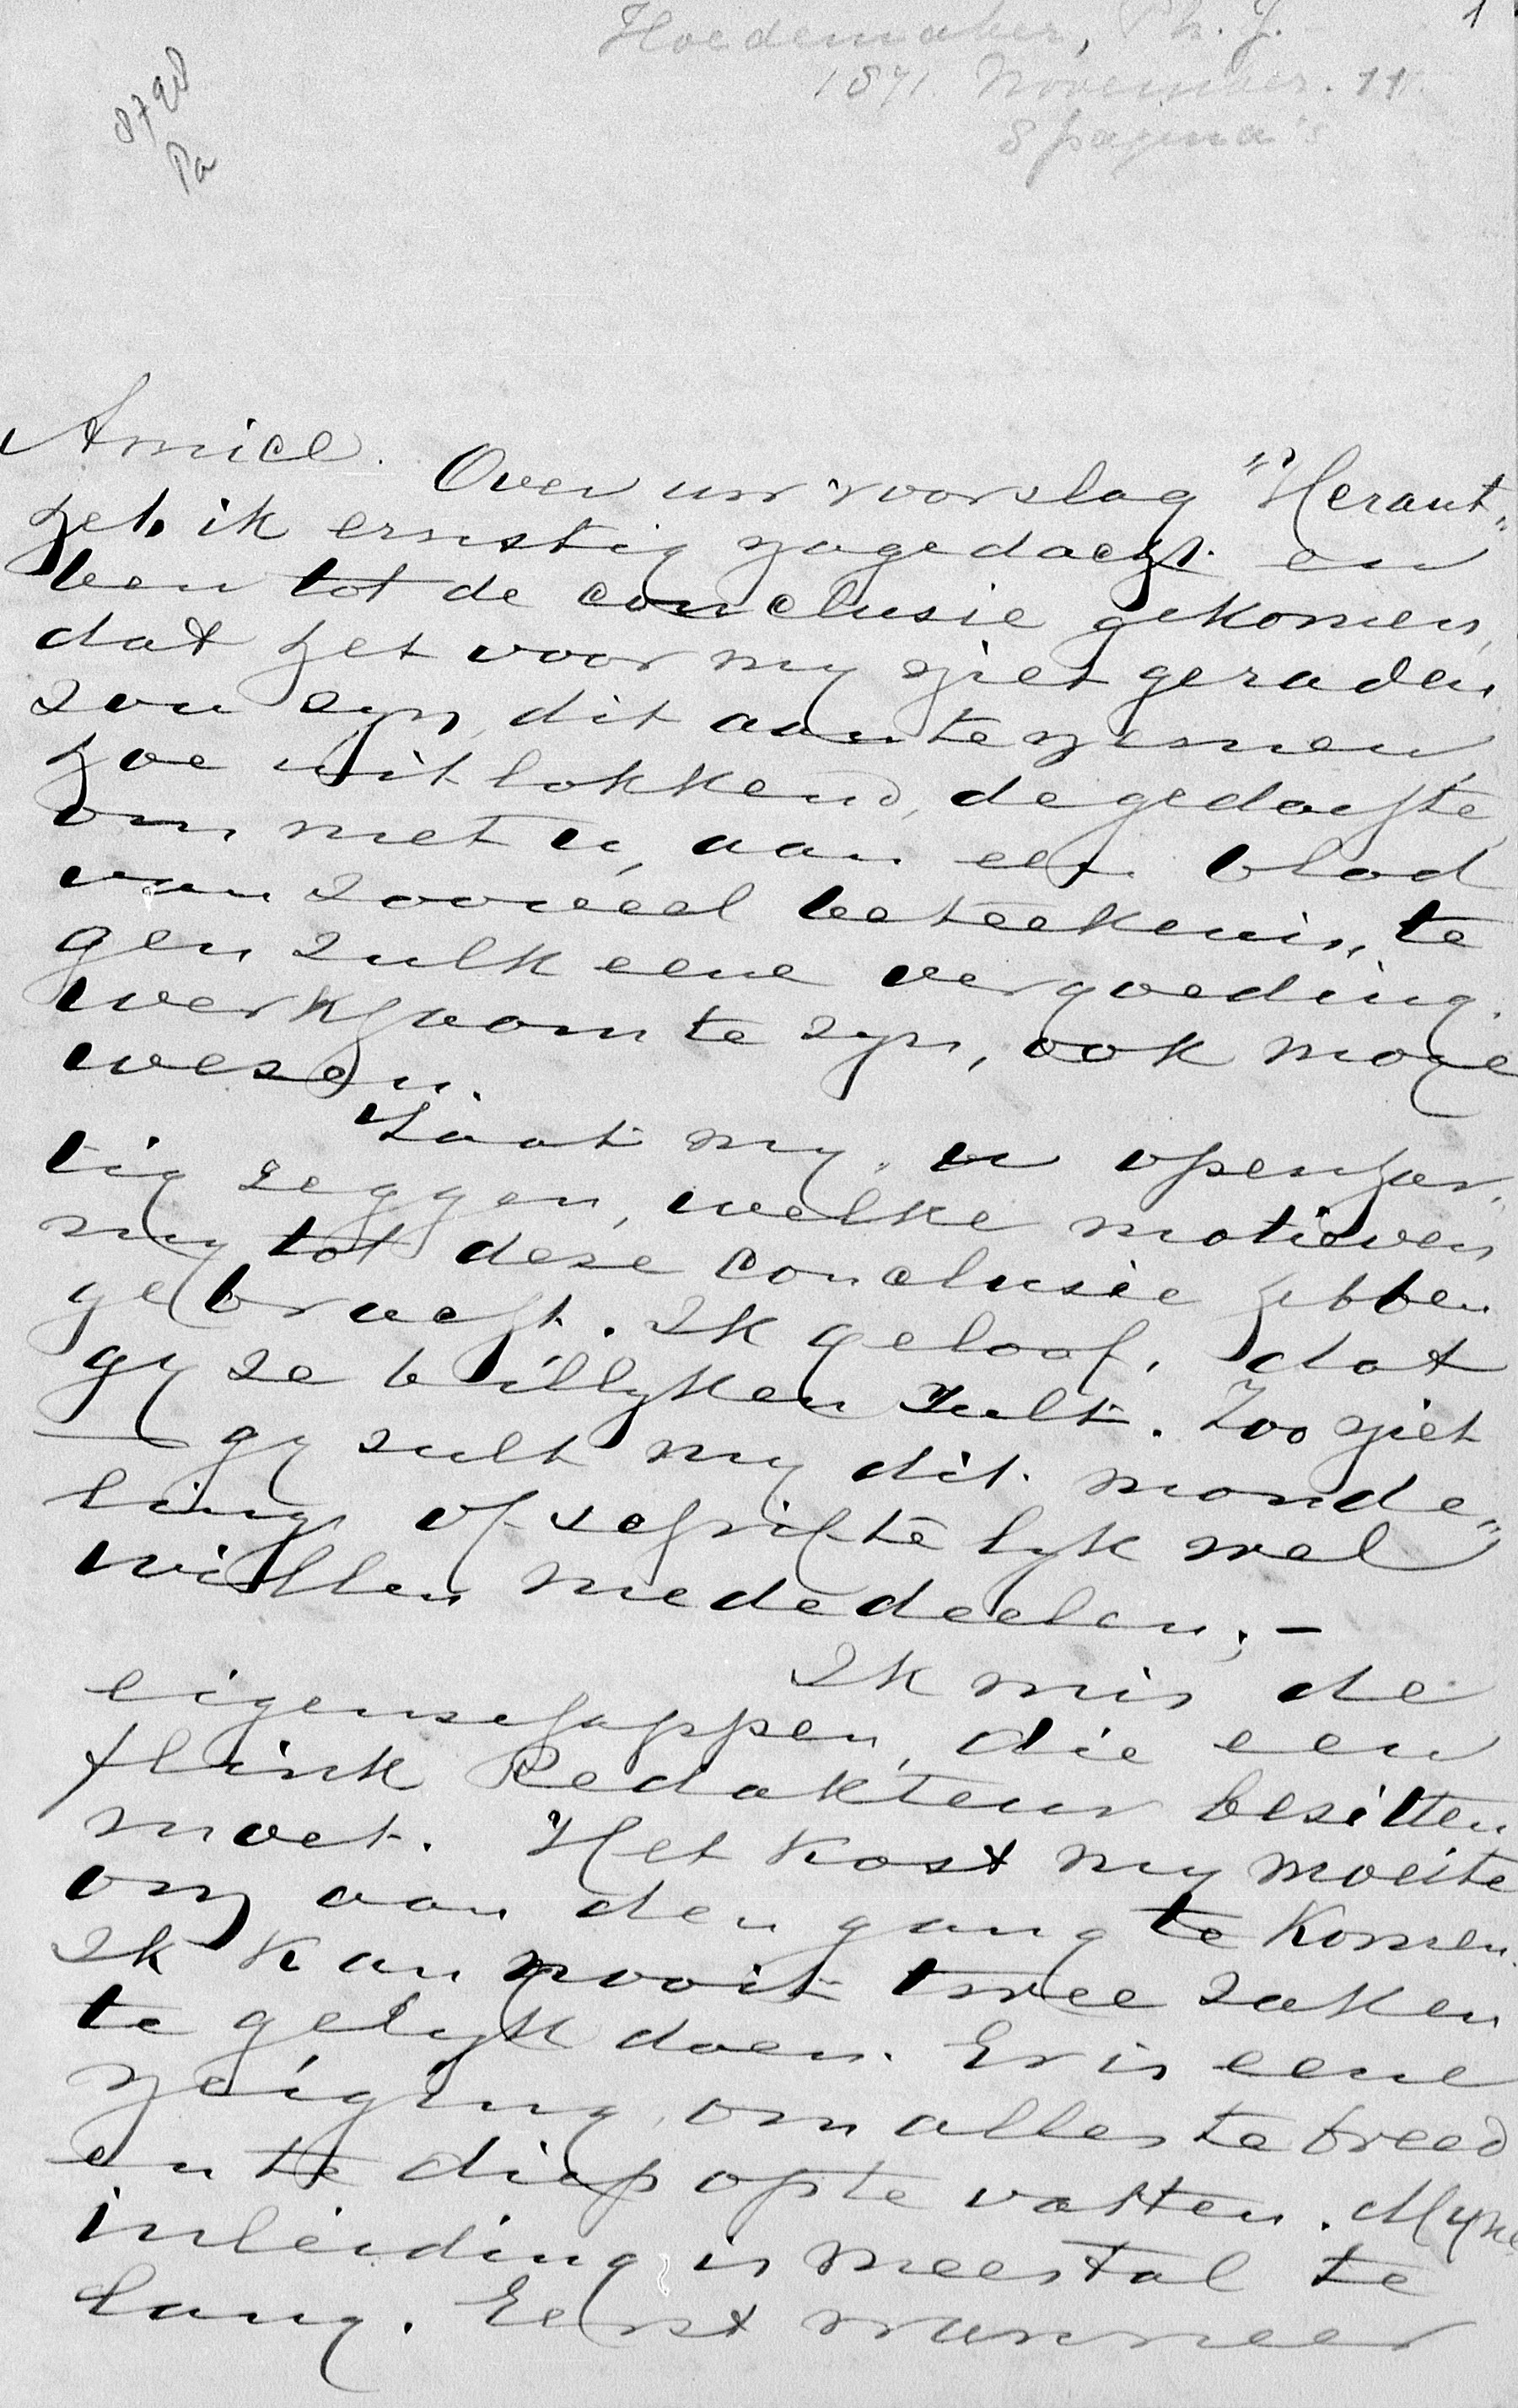 Hoedemaker, Ph. J. 1
1871. November. 11.
8 pagina's
8728
Pa
Amice.
Over uw voorslag "Heraut"
heb ik ernstig nagedacht en
ben tot de conclusie gekomen,
dat het voor my niet geraden
zou zyn, dit aan te nemen,
hoe uitlokkend, de gedachte,
om met u, aan een blad
van zooveel beteekenis, te
gen zulk eene vergoeding.
werkzaam te zyn, ook moge
wezen.
Laat my u openhar,
tig zeggen, welke motieven
my tot deze conclusie hebben
gebracht. Ik geloof, dat
gy ze billyken zult. Zoo niet
— gy zult my dit monde„
ling of schriftelyk wel
willen mededeelen; —
Ik mis de
eigenschappen, die een
flink Redakteur bezitten
moet. Het kost my moeite
om aan den gang te komen.
Ik kan nooit twee zaken
te gelyk doen. Er is eene
neiging, om alles te breed
en te diep op te vatten. Myne
inleiding is meestal te
lang. Eerst wanneer